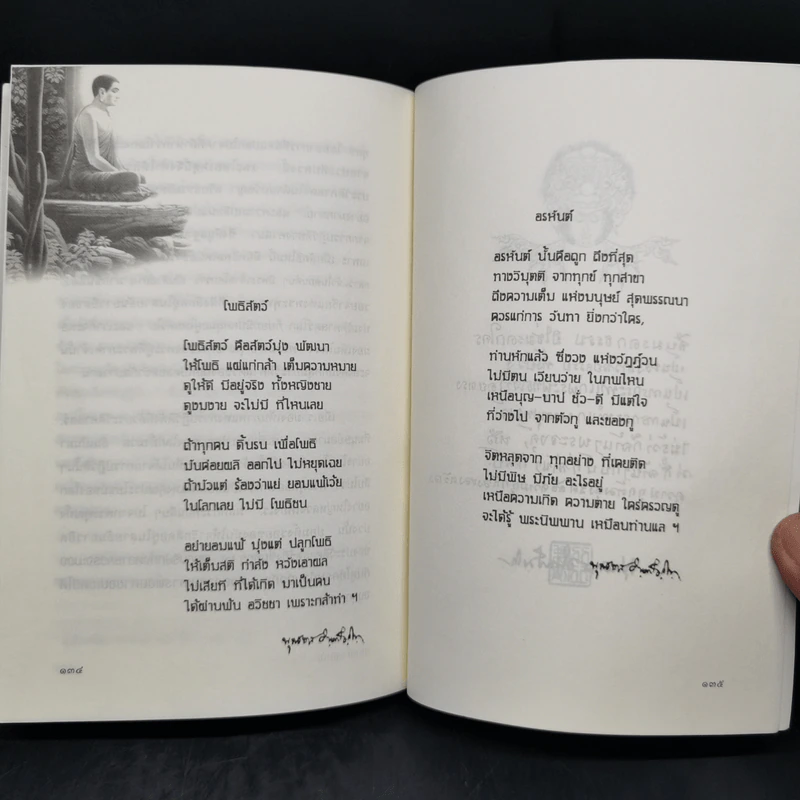 โพธิสัตว์
โพธิสัตว์ คือสัตว์มุ่ง พัฒนา
ให้โพธิ แผ่แก่กล้า เต็มความหมาย
ดูให้ดี มีอยู่จริง ทั้งหญิงชาย
ดูงมงาย จะไม่มี ที่ไหนเลย
ถ้าทุกคน ดิ้นรน เพื่อโพธิ
มันค่อยผลิ ออกไป ไม่หยุดเฉย
ถ้ามัวแต่ ร้องว่าแย่ ยอมแพ้เว้ย
ในโลกเลย ไม่มี โพธิชน
อย่ายอมแพ้ มุ่งแต่ ปลูกโพธิ
ให้เต็มสติ กำลัง หวังเอาผล
ไม่เสียที ที่ได้เกิด มาเป็นคน
ได้ผ่านพ้น อวิชชา เพราะกล้าทำ ฯ
พุทธทาส อินทปัญโญ
๑๓๔
อรหันต์
อรหันต์ นั้นคือถูก ถึงที่สุด
ทางวิมุตติ จากทุกข์ ทุกสาขา
ถึงความเต็ม แห่งมนุษย์ สุดพรรณนา
ควรแก่การ วันทา ยิ่งกว่าใคร,
ท่านหักแล้ว ซึ่งวง แห่งวัฏฏ์วน
ไม่มีตน เวียนว่าย ในภพไหน
เหนือบุญ-บาป ชั่ว-ดี มีแต่ใจ
ที่ว่างไป จากตัวกู และของกู
จิตหลุดจาก ทุกอย่าง ที่เคยติด
ไม่มีพิษ มีภัย อะไรอยู่
เหนือความเกิด ความตาย ใคร่ครวญดู
จะได้รู้ พระนิพพาน เหมือนท่านแล ฯ
พุทธทาส อินทปัญโญ
๑๓๕